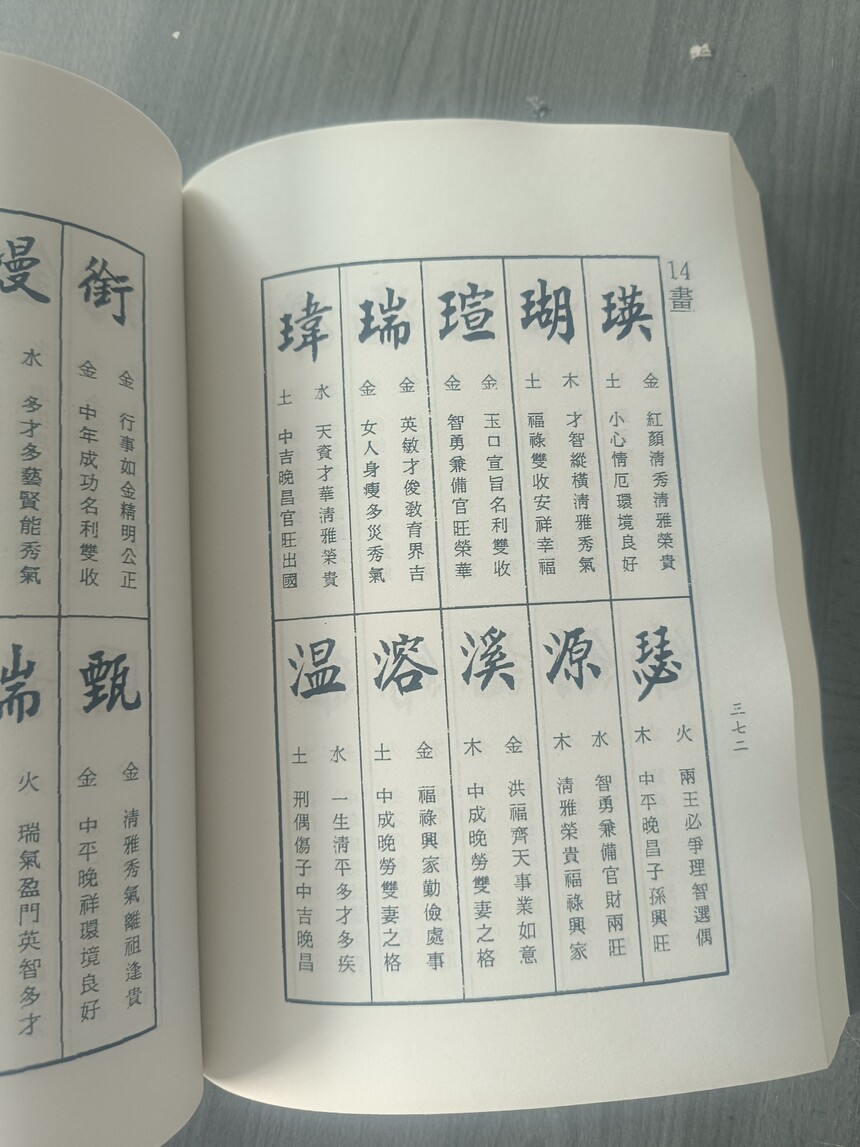 14畫
瑛
金 紅顏清秀清雅榮貴
土 小心情厄環境良好
瑚
木 才智縱橫清雅秀氣
土 福祿雙收安祥幸福
瑄
金 玉口宣旨名利雙收
金 智勇兼備官旺榮華
瑞
金 英敏才俊教育界吉
金 女人身瘦多災秀氣
瑋
水 天資才華清雅榮貴
土 中吉晚昌官旺出國
瑟
火 兩王必爭理智選偶
木 中平晚昌子孫興旺
源
水 智勇兼備官財兩旺
木 清雅榮貴福祿興家
溪
金 洪福齊天事業如意
木 中成晚勞雙妻之格
溶
金 福祿興家勤儉處事
土 中成晚勞雙妻之格
溫
水 一生清平多才多疾
土 刑偶傷子中吉晚昌
三七二
銜
金 行事如金精明公正
金 中年成功名利雙收
水 多才多藝賢能秀氣
甄
金 清雅秀氣離祖逢貴
金 中平晚祥環境良好
火 瑞氣盈門英智多才